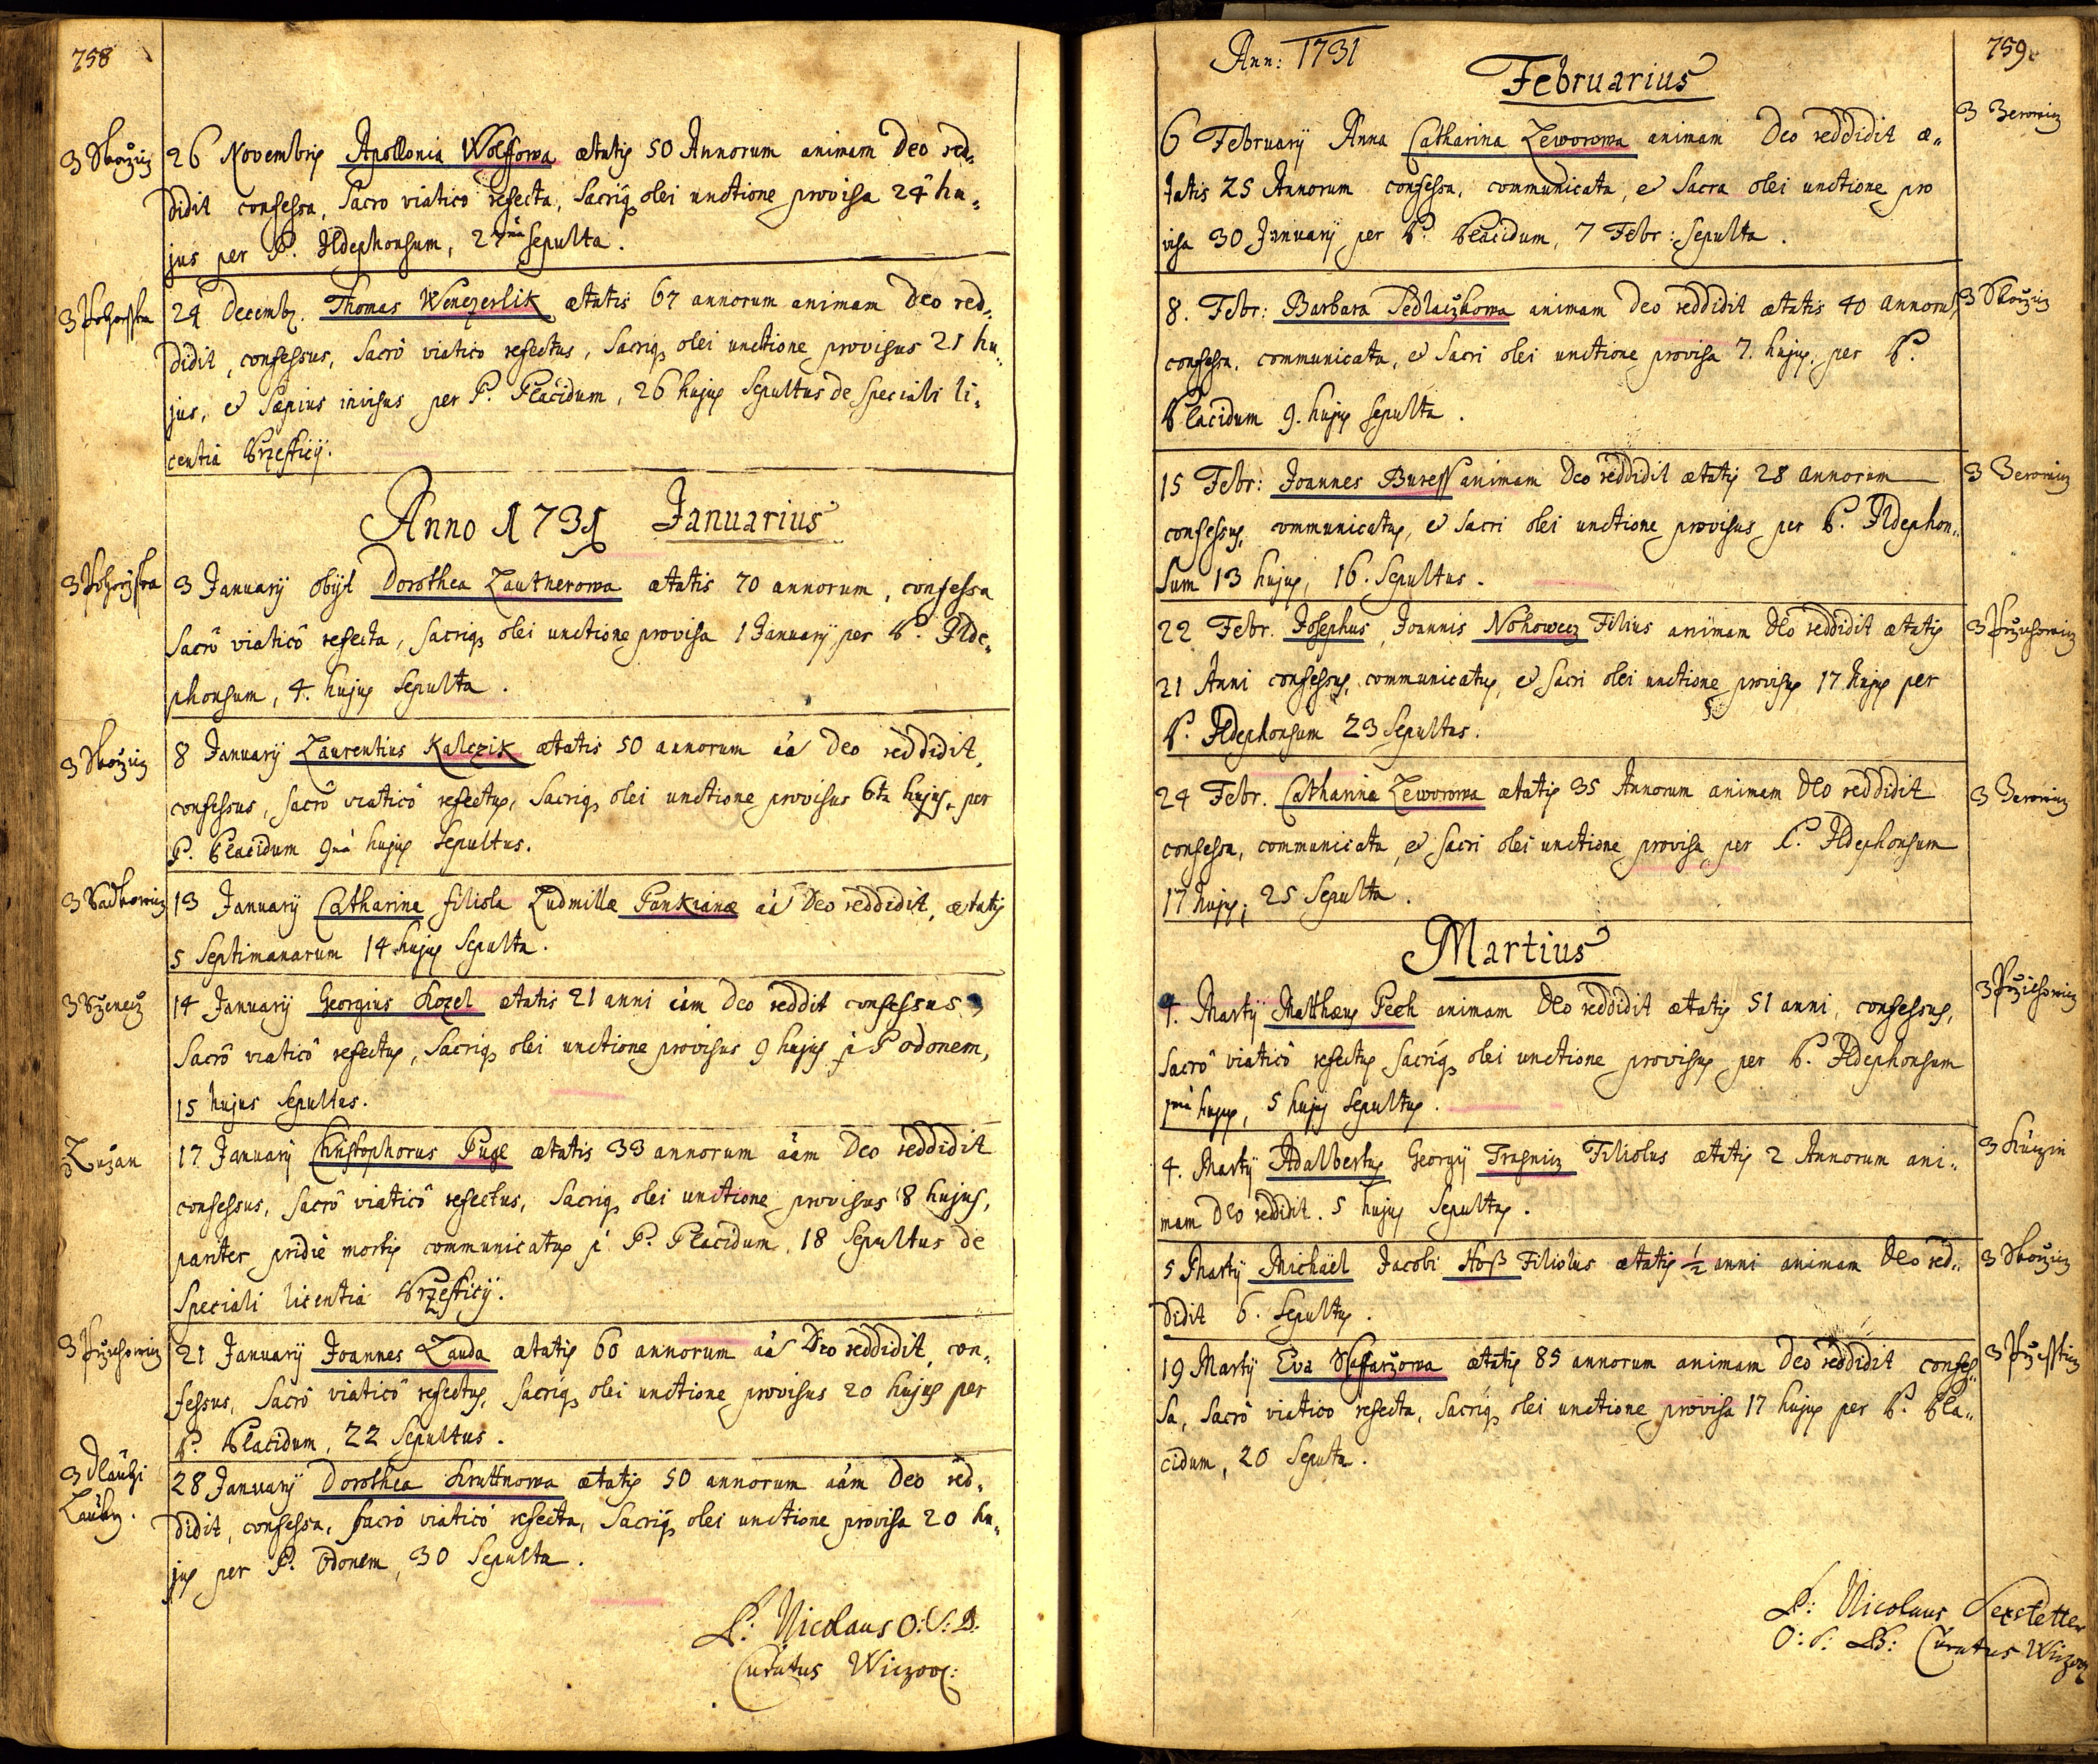 758
z Sboržicz
26 Novembris Apollonia Wolffowa ætatis 50 Annorum animam Deo red-
didit confessa, Sacro viatico refecta, Sacriq olei unctione provisa 24 hu-
jus per P. Ildephonsum, 27ma sepulta.
24 Decemb. Thomas Wenczerlik ætatis 67 annorum animam Deo red-
didit, confessus, Sacrô viaticô refectus, Sacriq olei unctione provisus 21 hu-
jus, et Sæpius invisus per P. Placidum, 26 hujus Sepultus de Speciali li-
centia Brzesticij.
Anno 1731 Januarius
3 Januarij obijt Dorothea Lautnerowa ætatis 70 annorum, confessa
Sacrô viaticô refecta, Sacriq olei unctione provisa 1 Januarij per P. Ilde-
phonsum, 4. hujus Sepulta.
8 Januarij Laurentius Kalczik ætatis 50 annorum aa Deo reddidit,
confessus, Sacrô viaticô refectus, Sacriq olei unctione provisus 6ta hujus, per
P. Placidum 9na hujus Sepultus.
z Radkowicz
13 Januarij Catharina filiola Ludmillæ Pankianæ aa Deo reddidit, ætatis
5 Septimanarum 14 hujus Sepulta.
14 Januarij Georgius Kozel ætatis 21 anni aam Deo reddit confessus,
Sacrô viaticô refectus, Sacriq olei unctione provisus 9 hujus p P odonem,
15 hujus Sepultus.
z Lužan
17 Januarij Christophorus Pugl ætatis 33 annorum aam Deo reddidit
confessus, Sacrô viaticô refectus, Sacriq olei unctione provisus 8 hujus,
pariter pridie mortis communicatus p P. Placidum, 18 Sepultus de
Speciali licentia Brzesticij.
z Przichowicz
21 Januarij Joannes Lauda ætatis 60 annorum aa Deo reddidit, con-
fessus, Sacrô viaticô refectus, Sacriq olei unctione provisus 20 hujus per
P. Placidum, 22 Sepultus.
z Dlauhi
Lauky.
28 Januarij Dorothea Kruttnowa ætatis 50 annorum aam Deo red-
didit, confessa, sacrô viaticô refecta, Sacriq olei unctione provisa 20 hu-
jus per P. Odonem, 30 Sepulta.
P: Nicolaus O: S: B:
Curatus Wiczow:
Ann: 1731
759
Februarius
z Zerowicz
6 Februarij Anna Catharina Leworowa animam Deo reddidit æ-
tatis 25 Annorum confessa, communicata, et Sacra olei unctione pro
visa 30 Januarij per P. Placidum, 7 Febr: Sepulta.
z Sboržicz
8. Febr: Barbara Sedlaczkowa animam Deo reddidit ætatis 40 annoru,
confessa, communicata, et Sacri olei unctione provisa 7. hujus, per P.
Placidum 9. hujus sepulta.
z Zerowicz
15 Febr: Joannes Buress animam Deo reddidit ætatis 28 annorum
confessus, communicatus, et Sacri olei unctione provisus per P. Ildephon-
sum 13 hujus, 16. Sepultus.
z Przichowicz
22 Febr. Josephus, Joannis Nohowecz Filius animam Deo reddidit ætatis
21 Anni confessus, communicatus, et Sacri olei unctione provisus 17 hujus per
P. Ildephonsum 23 Sepultus.
z Zerowicz
24 Febr. Catharina Leworowa ætatis 35 Annorum animam Deo reddidit
confessa, communicata, et Sacri olei unctione provisa per P. Ildephonsum
17 hujus, 25 Sepulta.
Martius
z Przichowicz
4. Martij Matthæus Pech animam Deo reddidit ætatis 51 anni, confessus,
Sacrô viaticô refectus Sacriq olei unctione provisus per P. Ildephonsum
1ma hujus, 5 hujus Sepultus.
4. Martij Adalbertus Georgij Trasnicz Filiolus ætatis 2 Annorum ani-
mam Deo reddidit. 5 hujus Sepultus.
z Sboržicz
5 Martij Michaël Jacobi Hoß Filiolus ætatis 1/2 anni animam Deo red-
didit 6. Sepultus.
19 Martij Eva Saffaržowa ætatis 85 annorum animam Deo reddidit confes-
sa, Sacrô viatico refecta, Sacriq olei unctione provisa 17 hujus per P. Pla-
cidum, 20 Sepulta.
P: Nicolaus Sexstetter
O: S: B: Curatus Wiczow